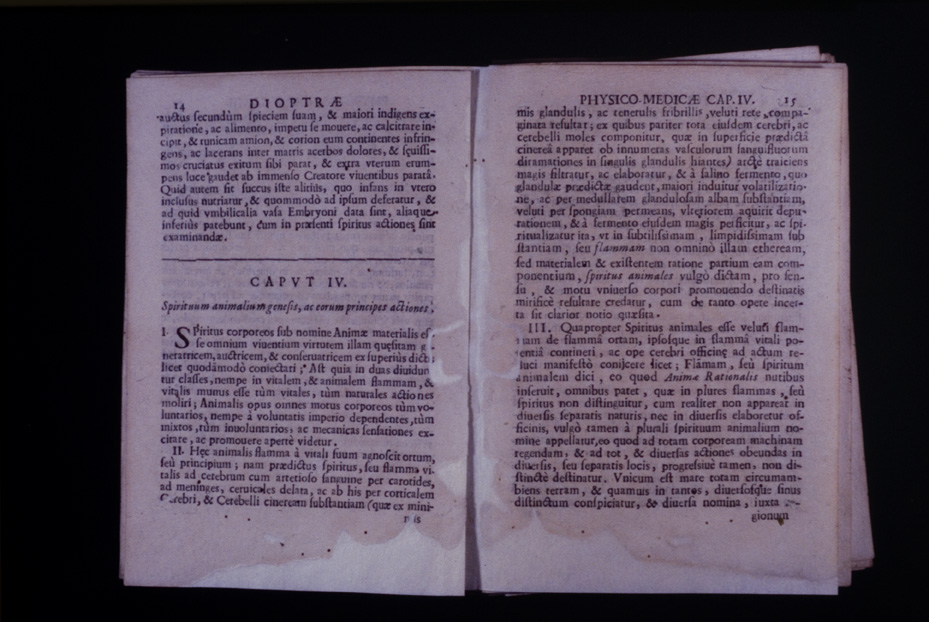 14 DIOPTRÆ
auctus secundùm speciem suam, & maiori indigens ex-
piratione, ac alimento, impetu se mouere, ac calcitrare in-
cipit, & tunicam amnion, & corion eum continentes infrin-
gens, ac lacerans inter matris acerbos dolores, & sæuissi-
mos cruciatus exitum sibi parat, & extra vterum erum-
pens luce gaudet ab immenso Creatore viuentibus parata.
Quid autem sit succus iste alitius, quo infans in vtero
inclusus nutriatur, & quommodò ad ipsum deferatur, &
ad quid vmbilicalia vasa Embryoni data sint, aliaque
inferiùs patebunt, cum in præsenti spiritus actiones sint
examinandæ.
CAPVT IV.
Spirituum animalium genesis, ac eorum principes actiones.
I. Spiritus corporeos sub nomine Animæ materialis es-
se omnium viuentium virtutem illam quæsitam
neratricem, auctricem, & conseruatricem ex superiùs dictis
licet quodàmodò coniectari; Ast quia in duas diuidun
tur classes, nempe in vitalem, & animalem flammam, &
vitalis munus esse tùm vitales, tùm naturales actiones
moliri; Animalis opus omnes motus corporeos tùm vo-
luntarios, nempe à voluntatis imperio dependentes, tùm
mixtos, tùm inuoluntarios, ac mecanicas sensationes ex-
citare, ac promouere apertè videtur.
II. Hęc animalis flamma à vitali suum agnoscit ortum,
seù principium; nam prædictus spiritus, seu flamma vi-
talis ad cerebrum cum arterioso sanguine per carotides,
ad meninges, ceruicales delata, ac ab his per corticalem
Cerebri, & Cerebelli cineream substantiam (quæ ex mini-
mis
PHYSICO-MEDICÆ CAP. IV. 15
mis glandulis, ac tenerulis fribrillis, veluti rete, compa-
ginata resultat; ex quibus pariter tota eiusdem cerebri, ac
cerebelli moles componitur, quæ in superficie prædictâ
cinereâ apparet ob innumeras vasculorum sanguisuorum
diramationes in singulis glandulis hiantes) arctè traiiciens
magis filtratur, ac elaboratur, & à salino fermento, quo
glandulæ prædictæ gaudent, maiori induitur volatilizatio-
ne, ac per medullarem glandulosam albam substantiam,
veluti per spongiam permeans, vlteriorem aquirit depu-
rationem, & à fermento eiusdem magis perficitur, ac spi-
ritualizatur ita, vt in subtilissimam, limpidissimam sub
stantiam, seu flammam non omninò illam etheream,
sed materialem & existentem ratione partium eam com-
ponentium, spiritus animales vulgò dictam, pro sen-
su, & motu vniuerso corpori promouendo destinatis
mirificè resultare credatur, cum de tanto opere incer-
ta sit clarior notio quæsita.
III. Quapropter Spiritus animales esse velut flam-
mam de flammâ ortam, ipsosque in flammâ vitali po-
tentiâ contineri, ac ope cerebri officinę ad actum re-
duci manifestò conijcere licet; Flāmam, seù spiritum
animalem dici, eo quod Animæ Rationalis nutibus
inseruit, omnibus patet, quæ in plures flammas, seù
spiritus non distinguitur, cum realiter non appareat in
diuersis separatis naturis, nec in diuersis elaboretur of-
ficinis, vulgò tamen à plurali spirituum animalium no-
mine appellatur, eo quod ad totam corpoream machinam
regendam, & ad tot, & diuersas actiones obeundas in
diuersis, seù separatis locis, progressiuè tamen, non di-
stinctè destinatur. Vnicum est mare totam circumam-
biens terram, & quamuis in tantos, diuersosque sinus
distinctum conspiciatur, & diuersa nomina, iuxta
gionum